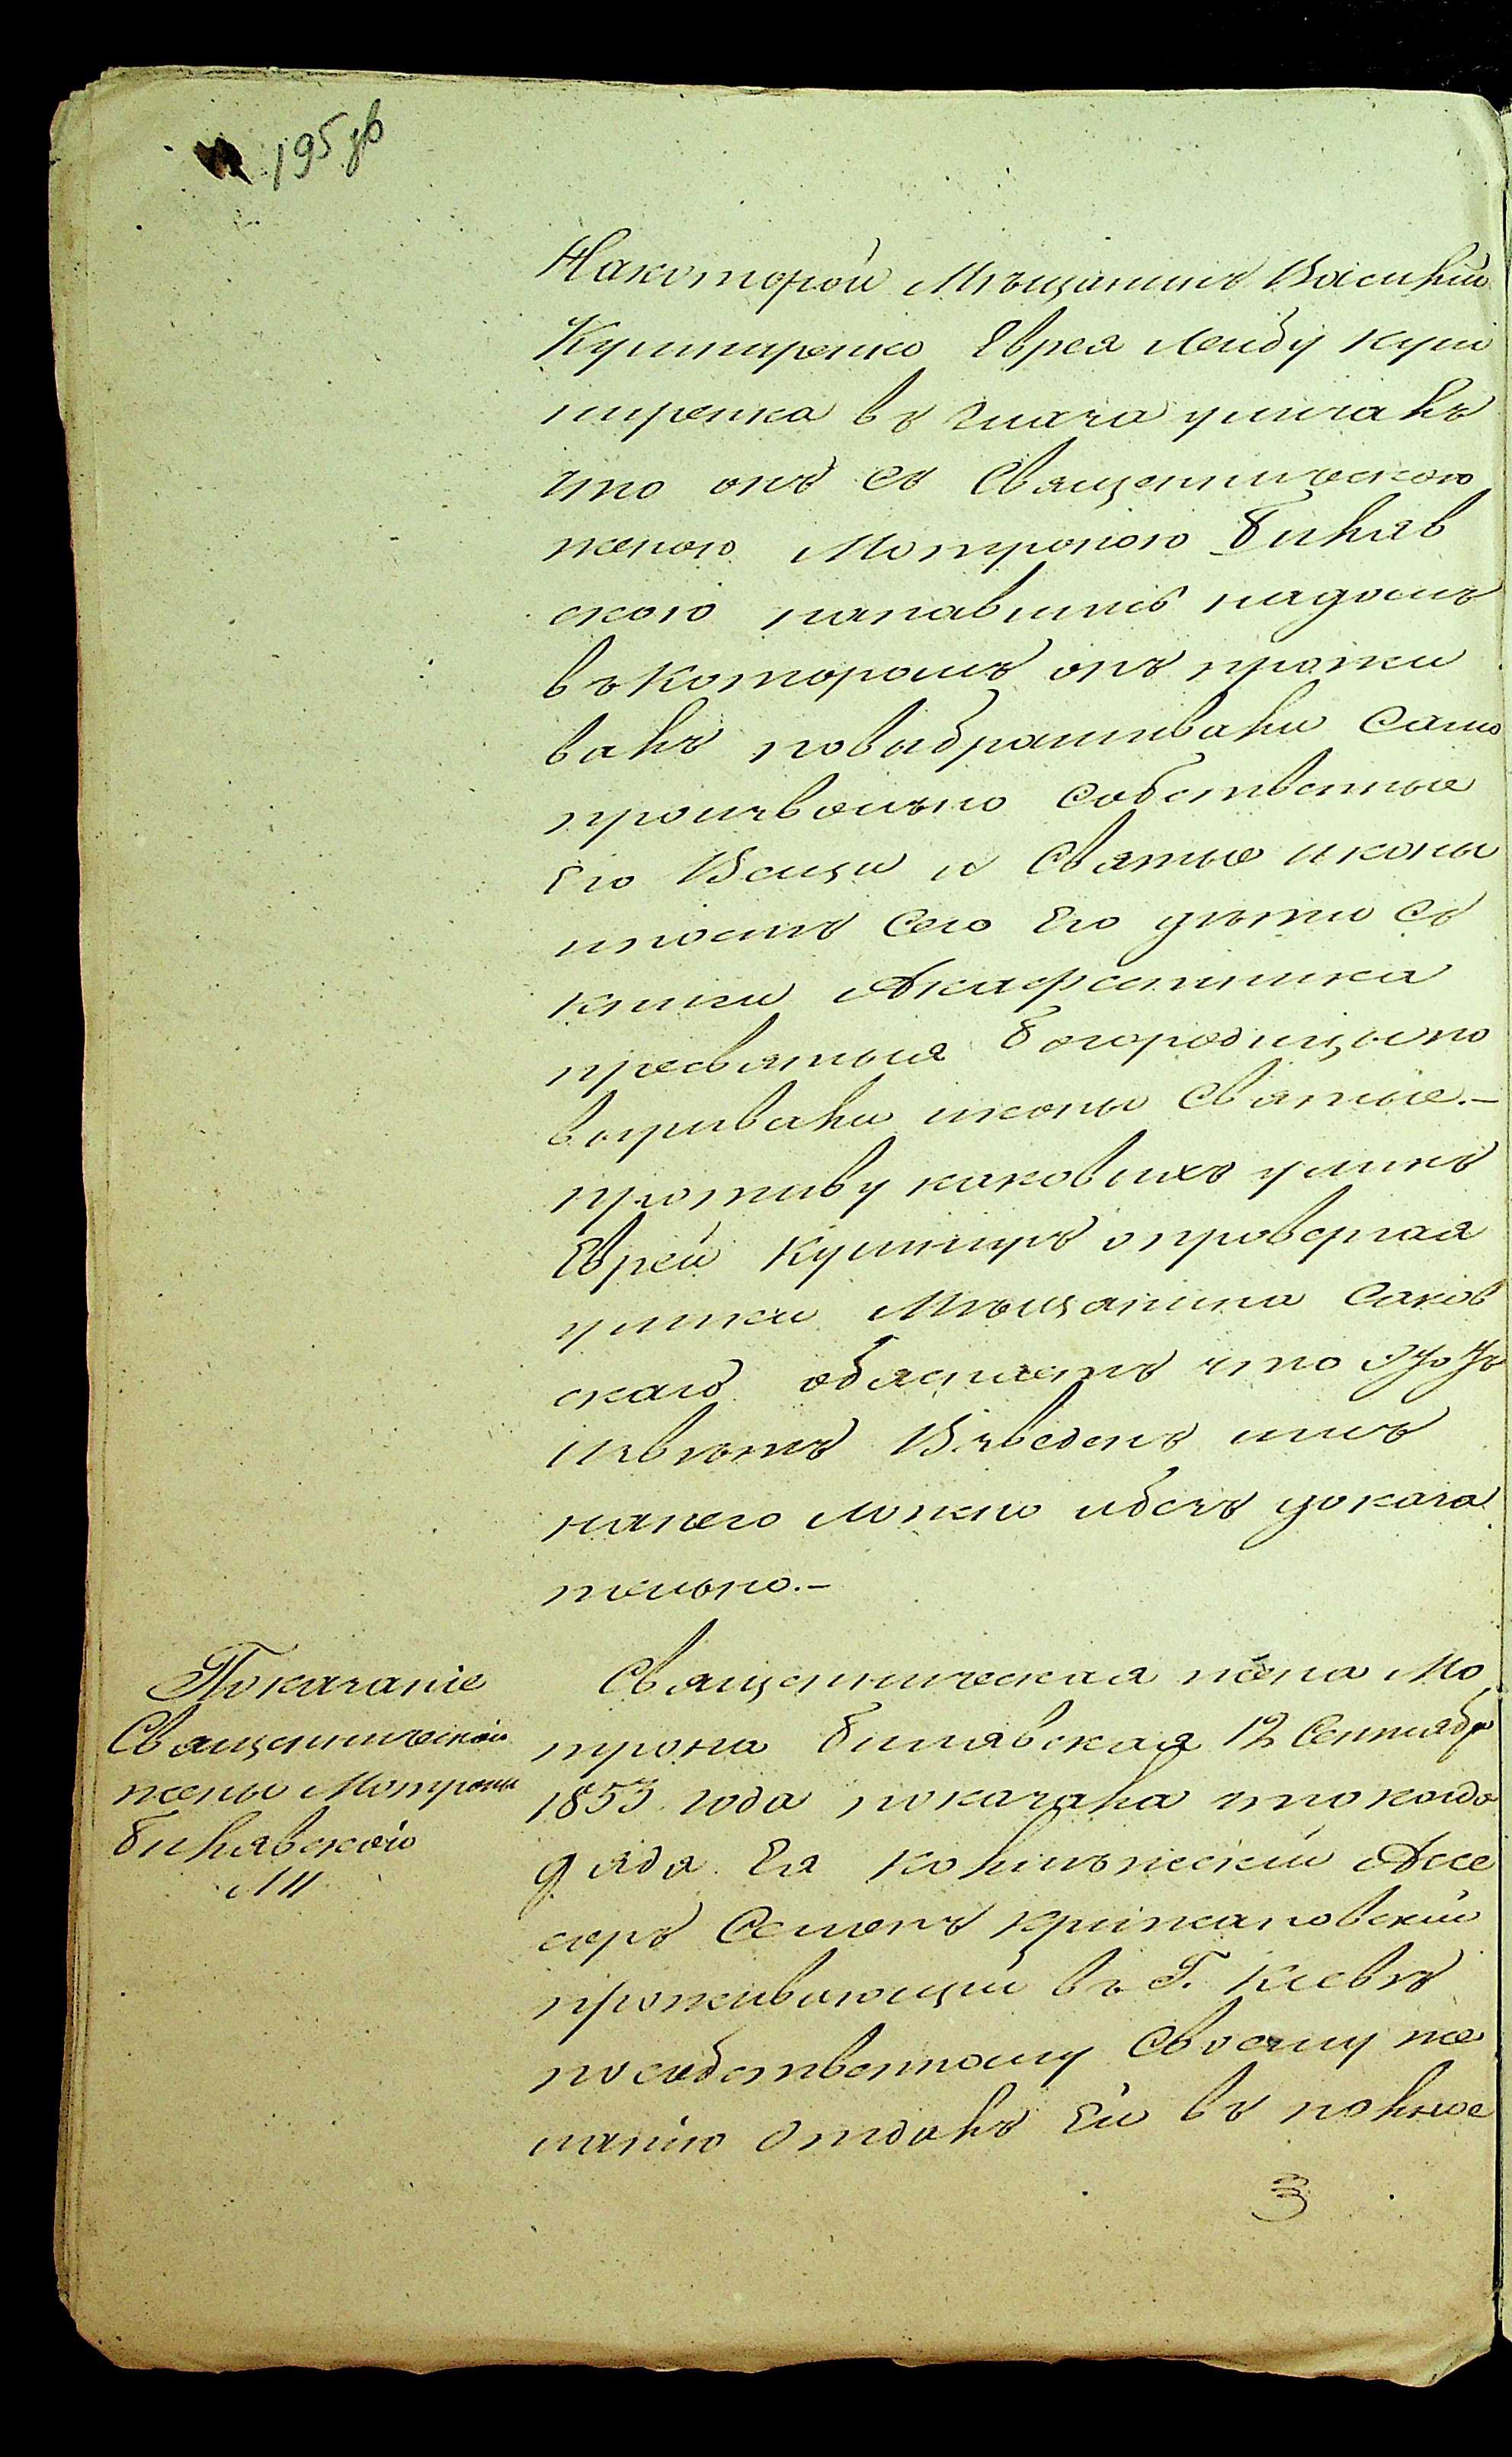 195 зв
На которой Мѣщанинъ Василій
Кушниренко Еврея Лейбу Куш
ниренка въ глаза уличалъ
что онъ съ Священническою
женою Мотроною Биляв
скою напавшись надомъ
въ которомъ онъ прожи
валъ повыбрасивали само
произвольно собственные
Его Вещи и Святые иконы
ипосли сего Его дѣти съ
книги Акафестника
пресвятыя Богородицы по
виривали иконы Святые.-
противу каковыхъ уликъ
Еврей Кушниръ опровергая
улики Мѣщанина
скаго объясняетъ что
извѣтъ Взведенъ имъ
нанего ложно ибезъ доказа
тельно.-
Показаніе
Священнической
жены Мотроны
Билявской
Священническая жена Мо
трона Билявская 12 Сентябр
1853 года показала что когда
дядя Ея Колѣжскій Ассе
соръ Семенъ Крижановскій
проживающій въ Г. Кіевѣ
пособственному Своему же
ланію Отдалъ Ей въ полное
3